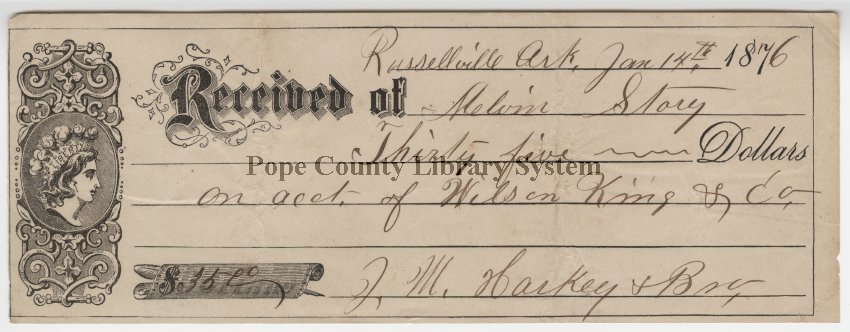 Russellville Ark, Jan 14th, 1876
Received of Melvin Story
Thirty five Dollars
Pope County Library System
on acct. of Wilson King & Co,
$35 00
J. M. Harkey & Bro,